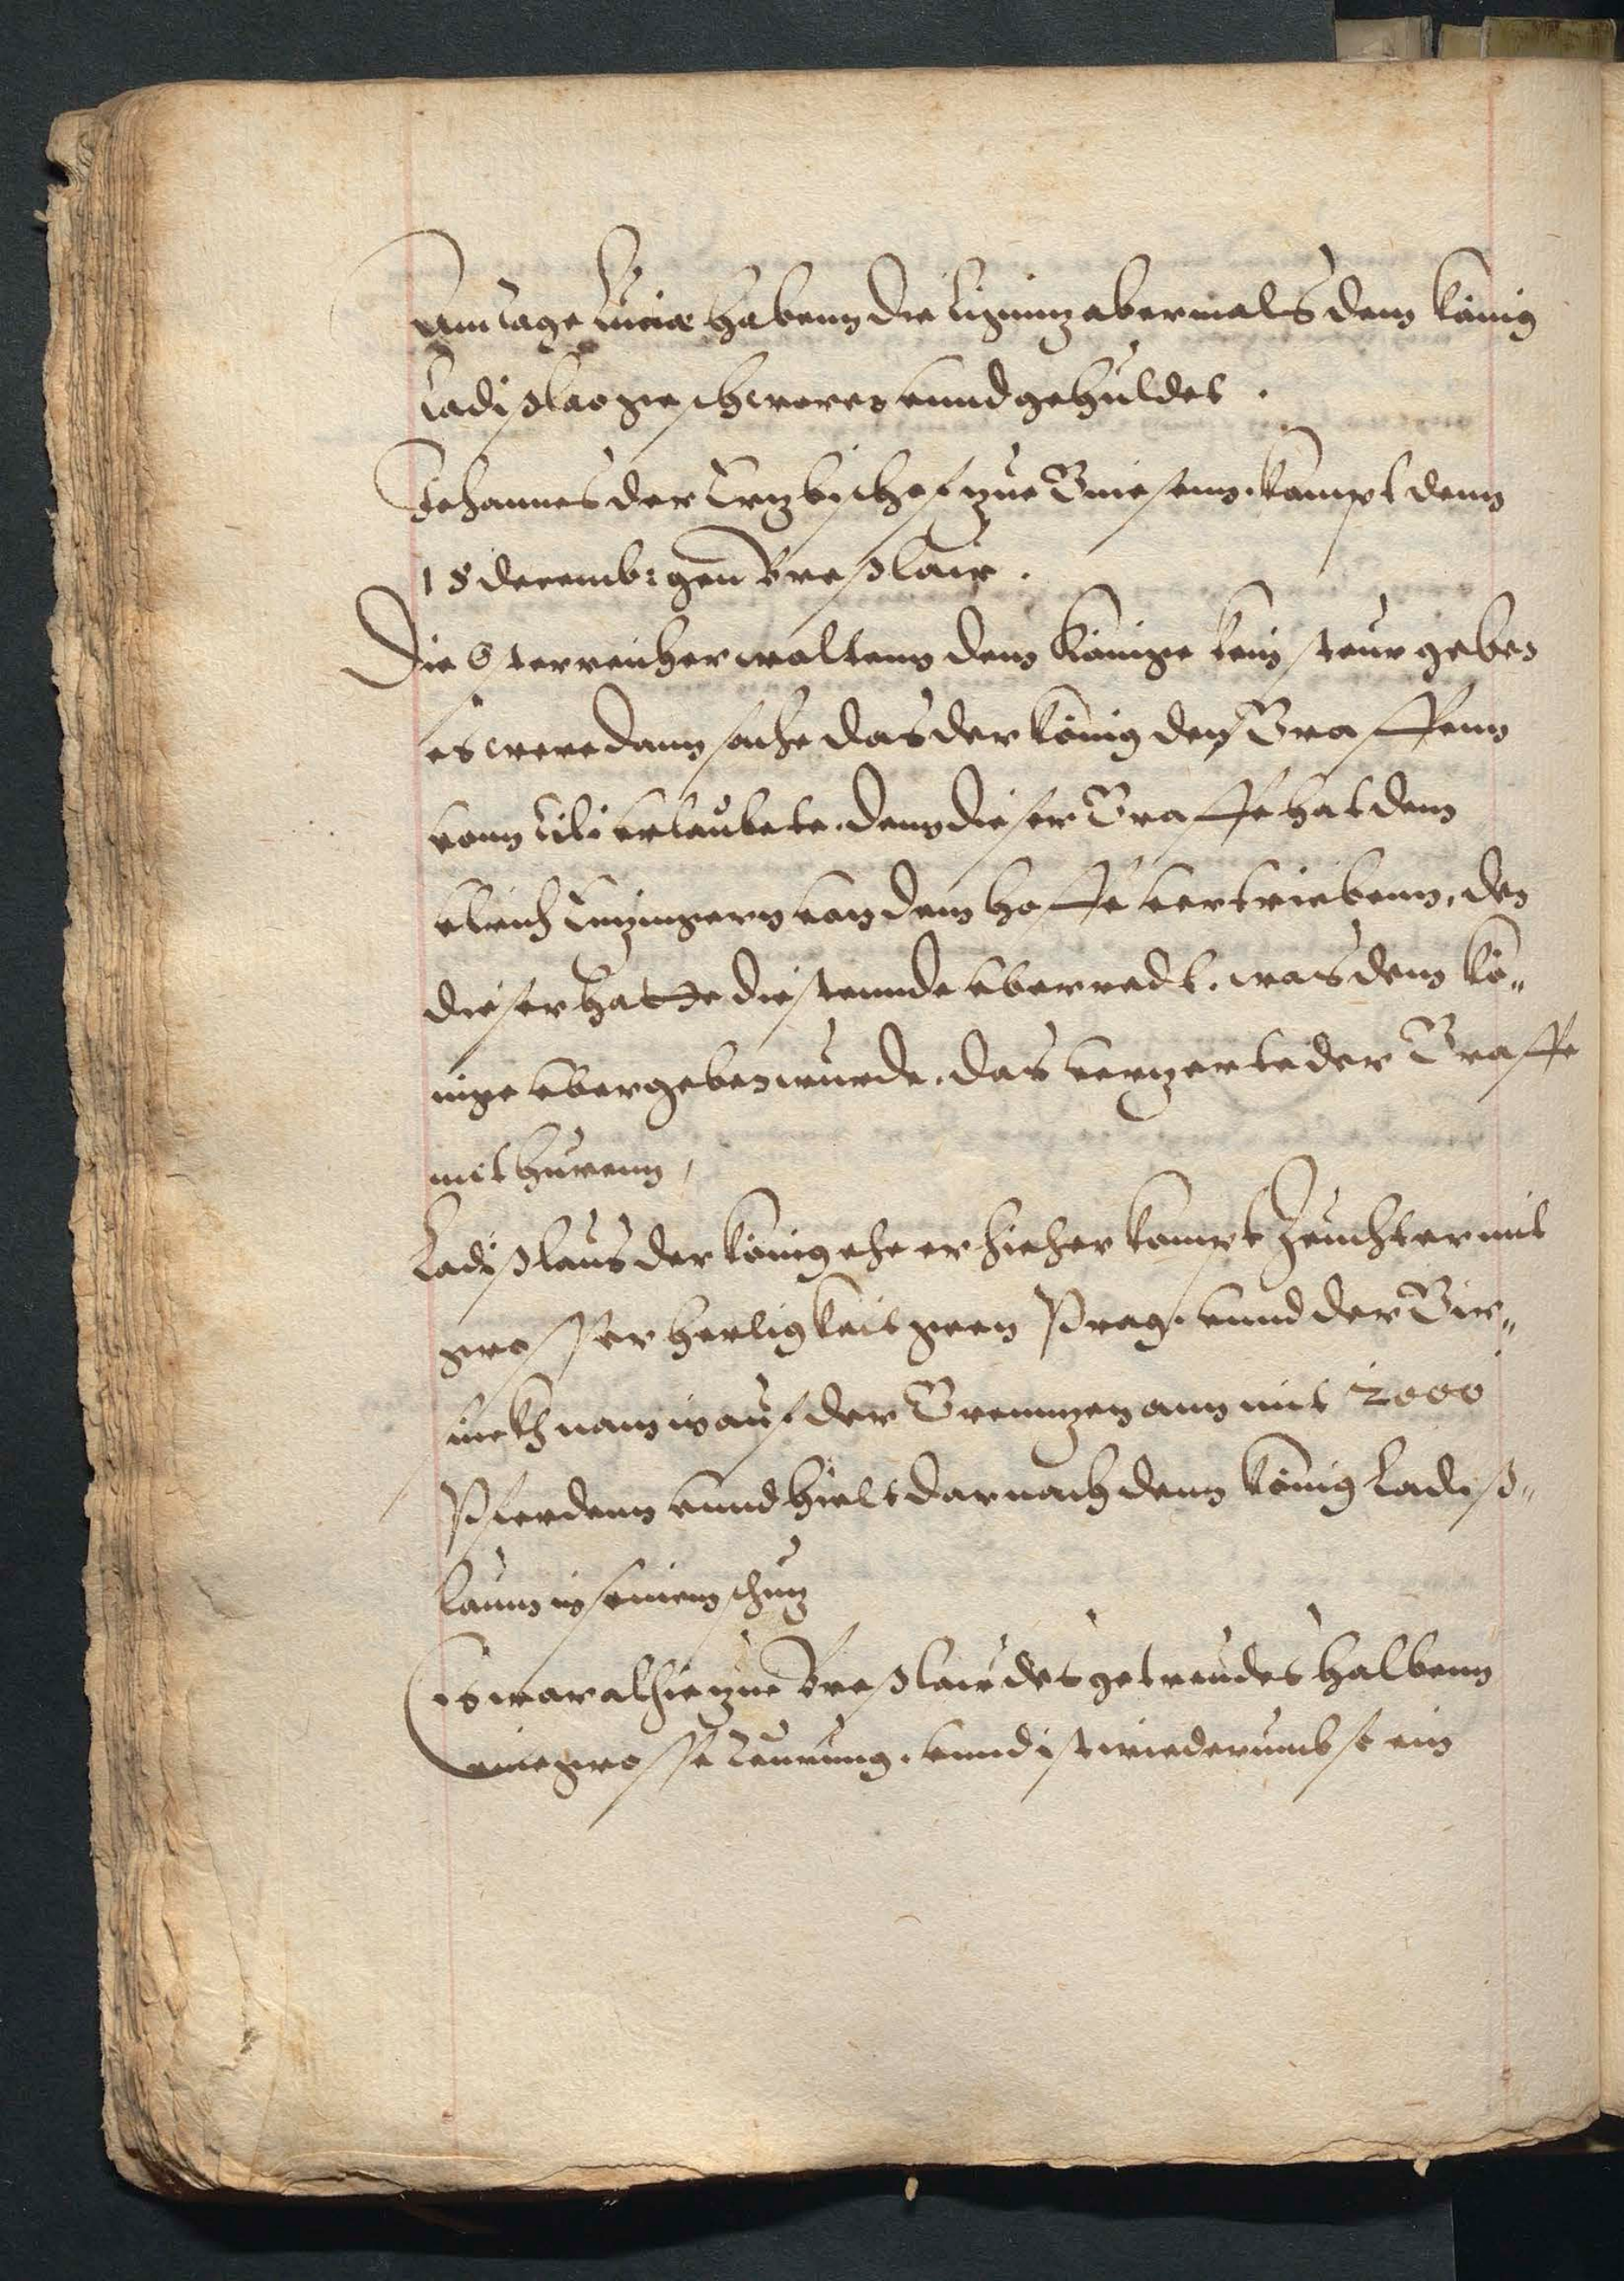 Am tage Luciæ habenn die Lignitz abermals dem König
Ladißlao geschworen unnd gehuldet.
Johannes der Ertzbischof zue Gniesenn. kompt denn
18 decemb: gen Breßlaw.
Die Osterreicher woltenn dem Könige kein steur geben
es were dann sache das der König den Graffenn
vonn Cili erlaubete. denn dieser Graffe hat denn
Ulrich Eyzingern von dem hoffe vertriebenn, den
dieser hatte die stennde uberredt. was dem Kö„
nige ubergeben wurde. das verzerte der Graffe
mit hurenn,
Ladißlaus der König ehe er hieher kompt Zeucht er mit
grosser herligkeit genn Prag. unnd der Gir„
sickh nam in auf der Grenntzen ann mit 2000
Pferdenn unnd hielt darnach denn König Ladiß„
laum in seinem schutz
Es war alhie zue Breßlaw des getreudes halbenn
eine grosse teurung. unnd ist wiederumb so ein